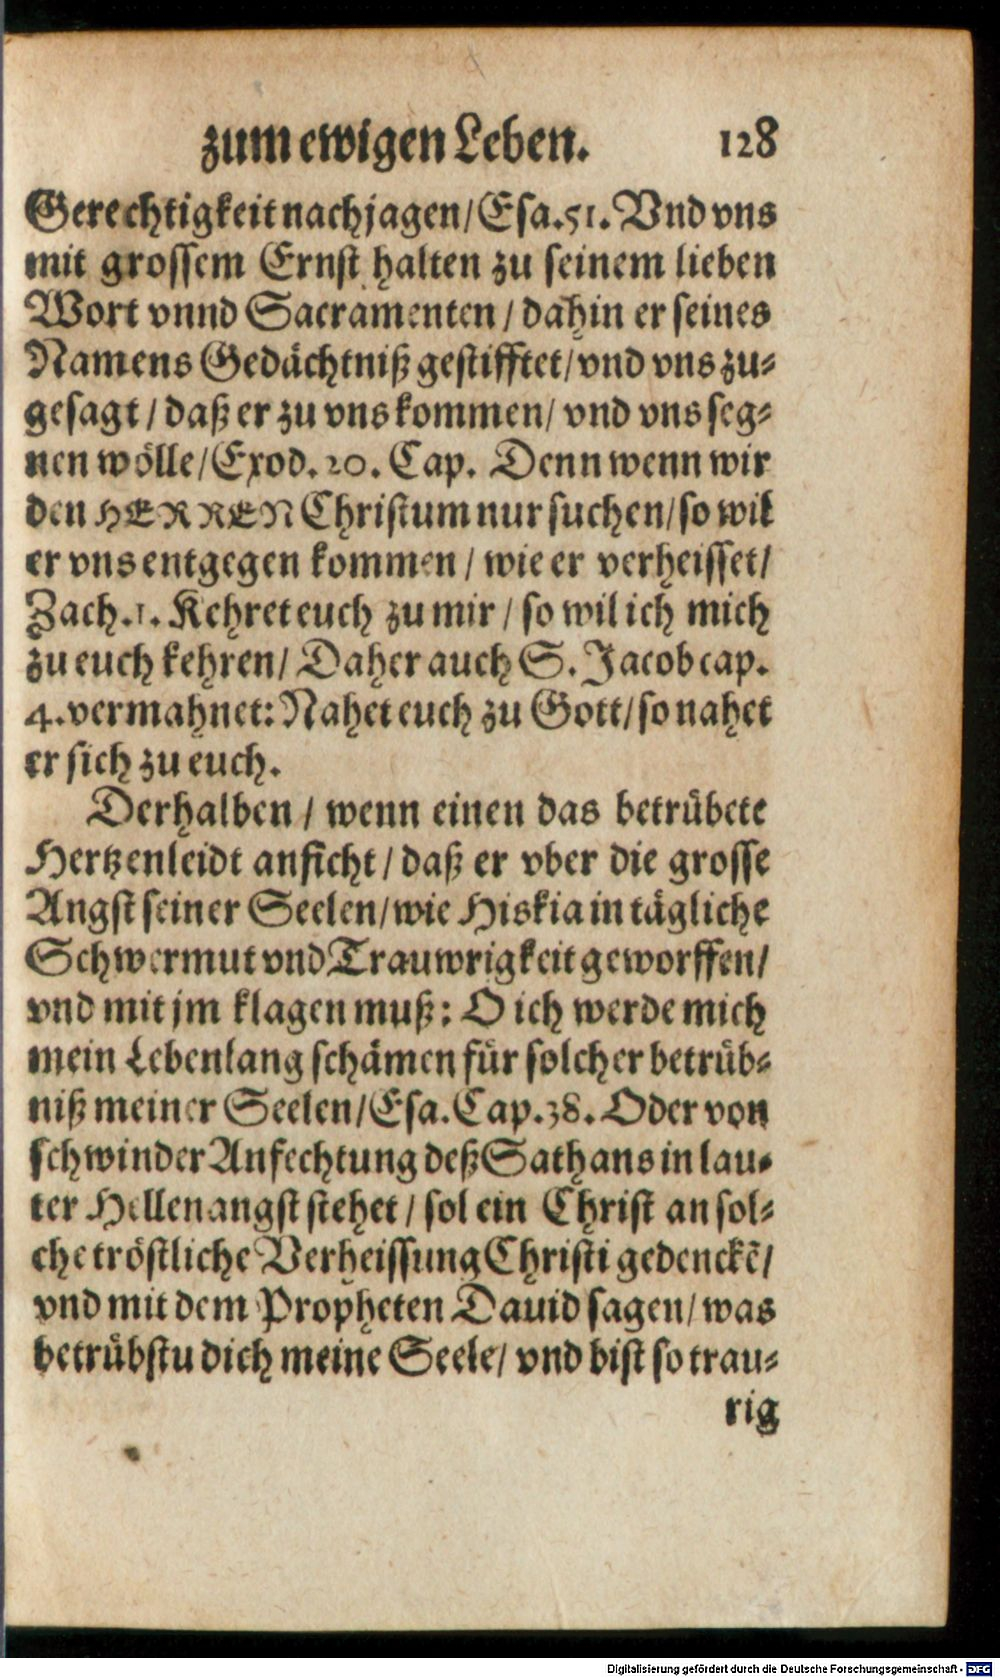 zum ewigen Leben. 128
Gerechtigkeit nachjagen/ Esa. 51. Vnd vns
mit grossem Ernst halten zu seinem lieben
Wort vnnd Sacramenten / dahin er seines
Namens Gedächtniß gestifftet/ vnd vns zu-
gesagt / daß er zu vns kommen/ vnd vns seg-
nen wölle/ Exod. 20. Cap. Denn wenn wir
den HERREN Christum nur suchen/ so wil
er vns entgegen kommen / wie er verheisset/
Zach. 1. Kehret euch zu mir / so wil ich mich
zu euch kehren/ Daher auch S. Jacob cap.
4. vermahnet: Nahet euch zu Gott/ so nahet
er sich zu euch.
Derhalben / wenn einen das betrübete
Hertzenleidt anficht / daß er vber die grosse
Angst seiner Seelen/ wie Hiskia in tägliche
Schwermut vnd Trauwrigkeit geworffen/
vnd mit jm klagen muß: O ich werde mich
mein Lebenlang schämen für solcher betrüb-
niß meiner Seelen/ Esa. Cap. 38. Oder von
schwinder Anfechtung deß Sathans in lau-
ter Hellenangst stehet / sol ein Christ an sol-
che tröstliche Verheissung Christi gedenckẽ/
vnd mit dem Propheten Dauid sagen/ was
betrübstu dich meine Seele/ vnd bist so trau-
rig
Digitalisierung gefördert durch die Deutsche Forschungsgemeinschaft - DFG